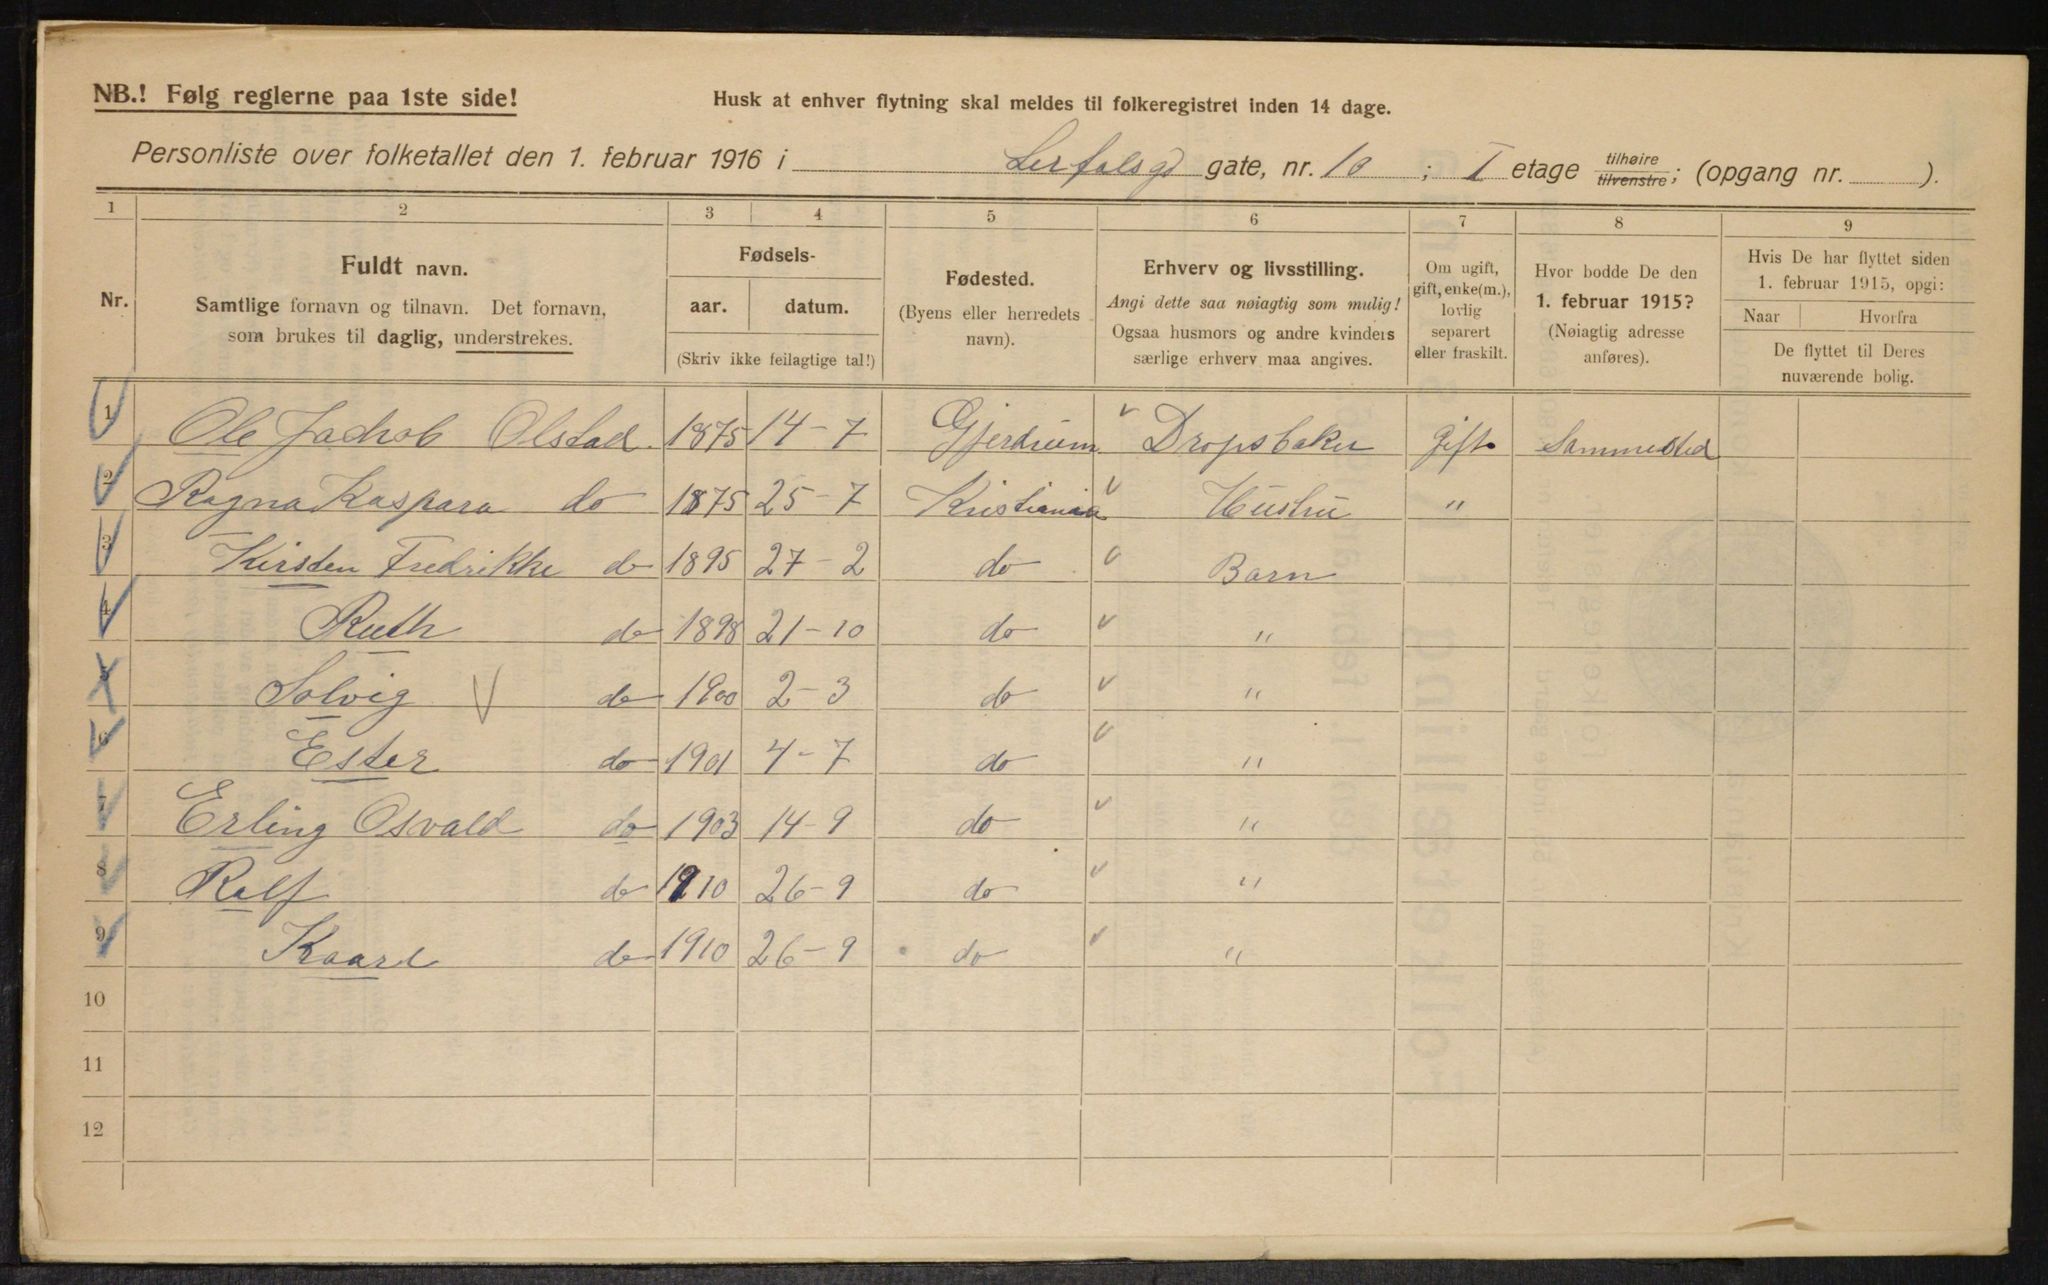 NB.! Følg reglerne paa 1ste side!
Husk at enhver flytning skal meldes til folkeregistret inden 14 dage.
Personliste over folketallet den 1. februar 1916 i Lerfalsgd gate, nr. 10 ; I etage tilhøire tilvenstre; (opgang nr. ).
1 2 3 4 5 6 7 8 9
Nr.
Fuldt navn.
Samtlige fornavn og tilnavn. Det fornavn,
som brukes til daglig, understrekes.
Fødsels-
aar. datum.
(Skriv ikke feilagtige tal!)
Fødested.
(Byens eller herredets
navn).
Erhverv og livsstilling.
Angi dette saa nøiagtig som mulig!
Ogsaa husmors og andre kvinders
særlige erhverv maa angives.
Om ugift,
gift, enke(m.),
lovlig
separert
eller fraskilt.
Hvor bodde De den
1. februar 1915?
(Nøiagtig adresse
anføres).
Hvis De har flyttet siden
1. februar 1915, opgi:
Naar Hvorfra
De flyttet til Deres
nuværende bolig.
1 Ole Jachob Olstad 1875 14-7 Gjerdrum Dropsbaker gift Sammested
2 Ragna Kaspara do 1875 25-7 Kristiania Hustru "
3 Kirsten Fredrikke do 1895 27-2 do Barn
4 Ruth do 1898 21-10 do "
5 Solvig do 1900 2-3 do "
6 Ester do 1901 4-7 do "
7 Erling Osvald do 1903 14-9 do "
8 Ralf do 1910 26-9 do "
9 Kaare do 1910 26-9 do "
10
11
12